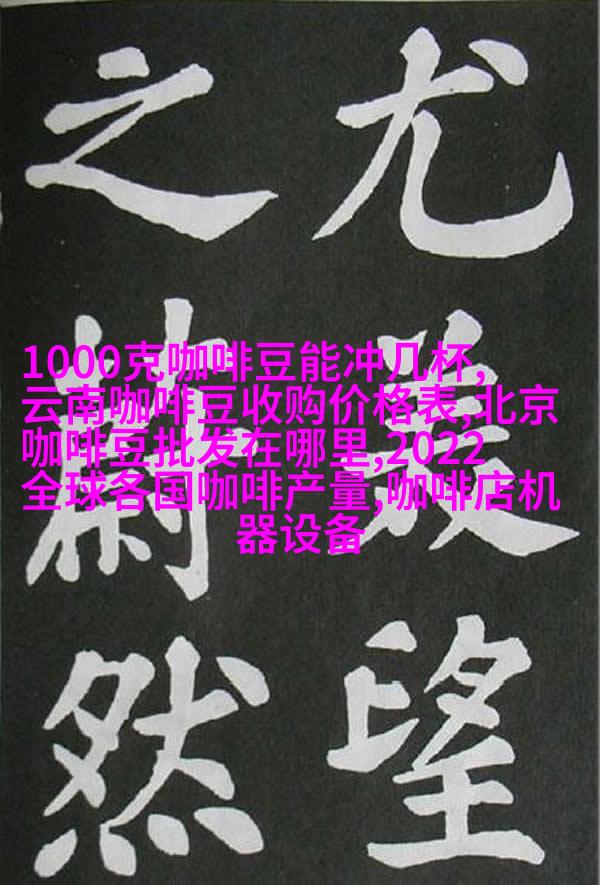 尤美望
之蔚然
1000克咖啡豆能冲几杯,
云南咖啡豆收购价格表,北京
咖啡豆批发在哪里,2022
全球各国咖啡产量,咖啡店机
器设备